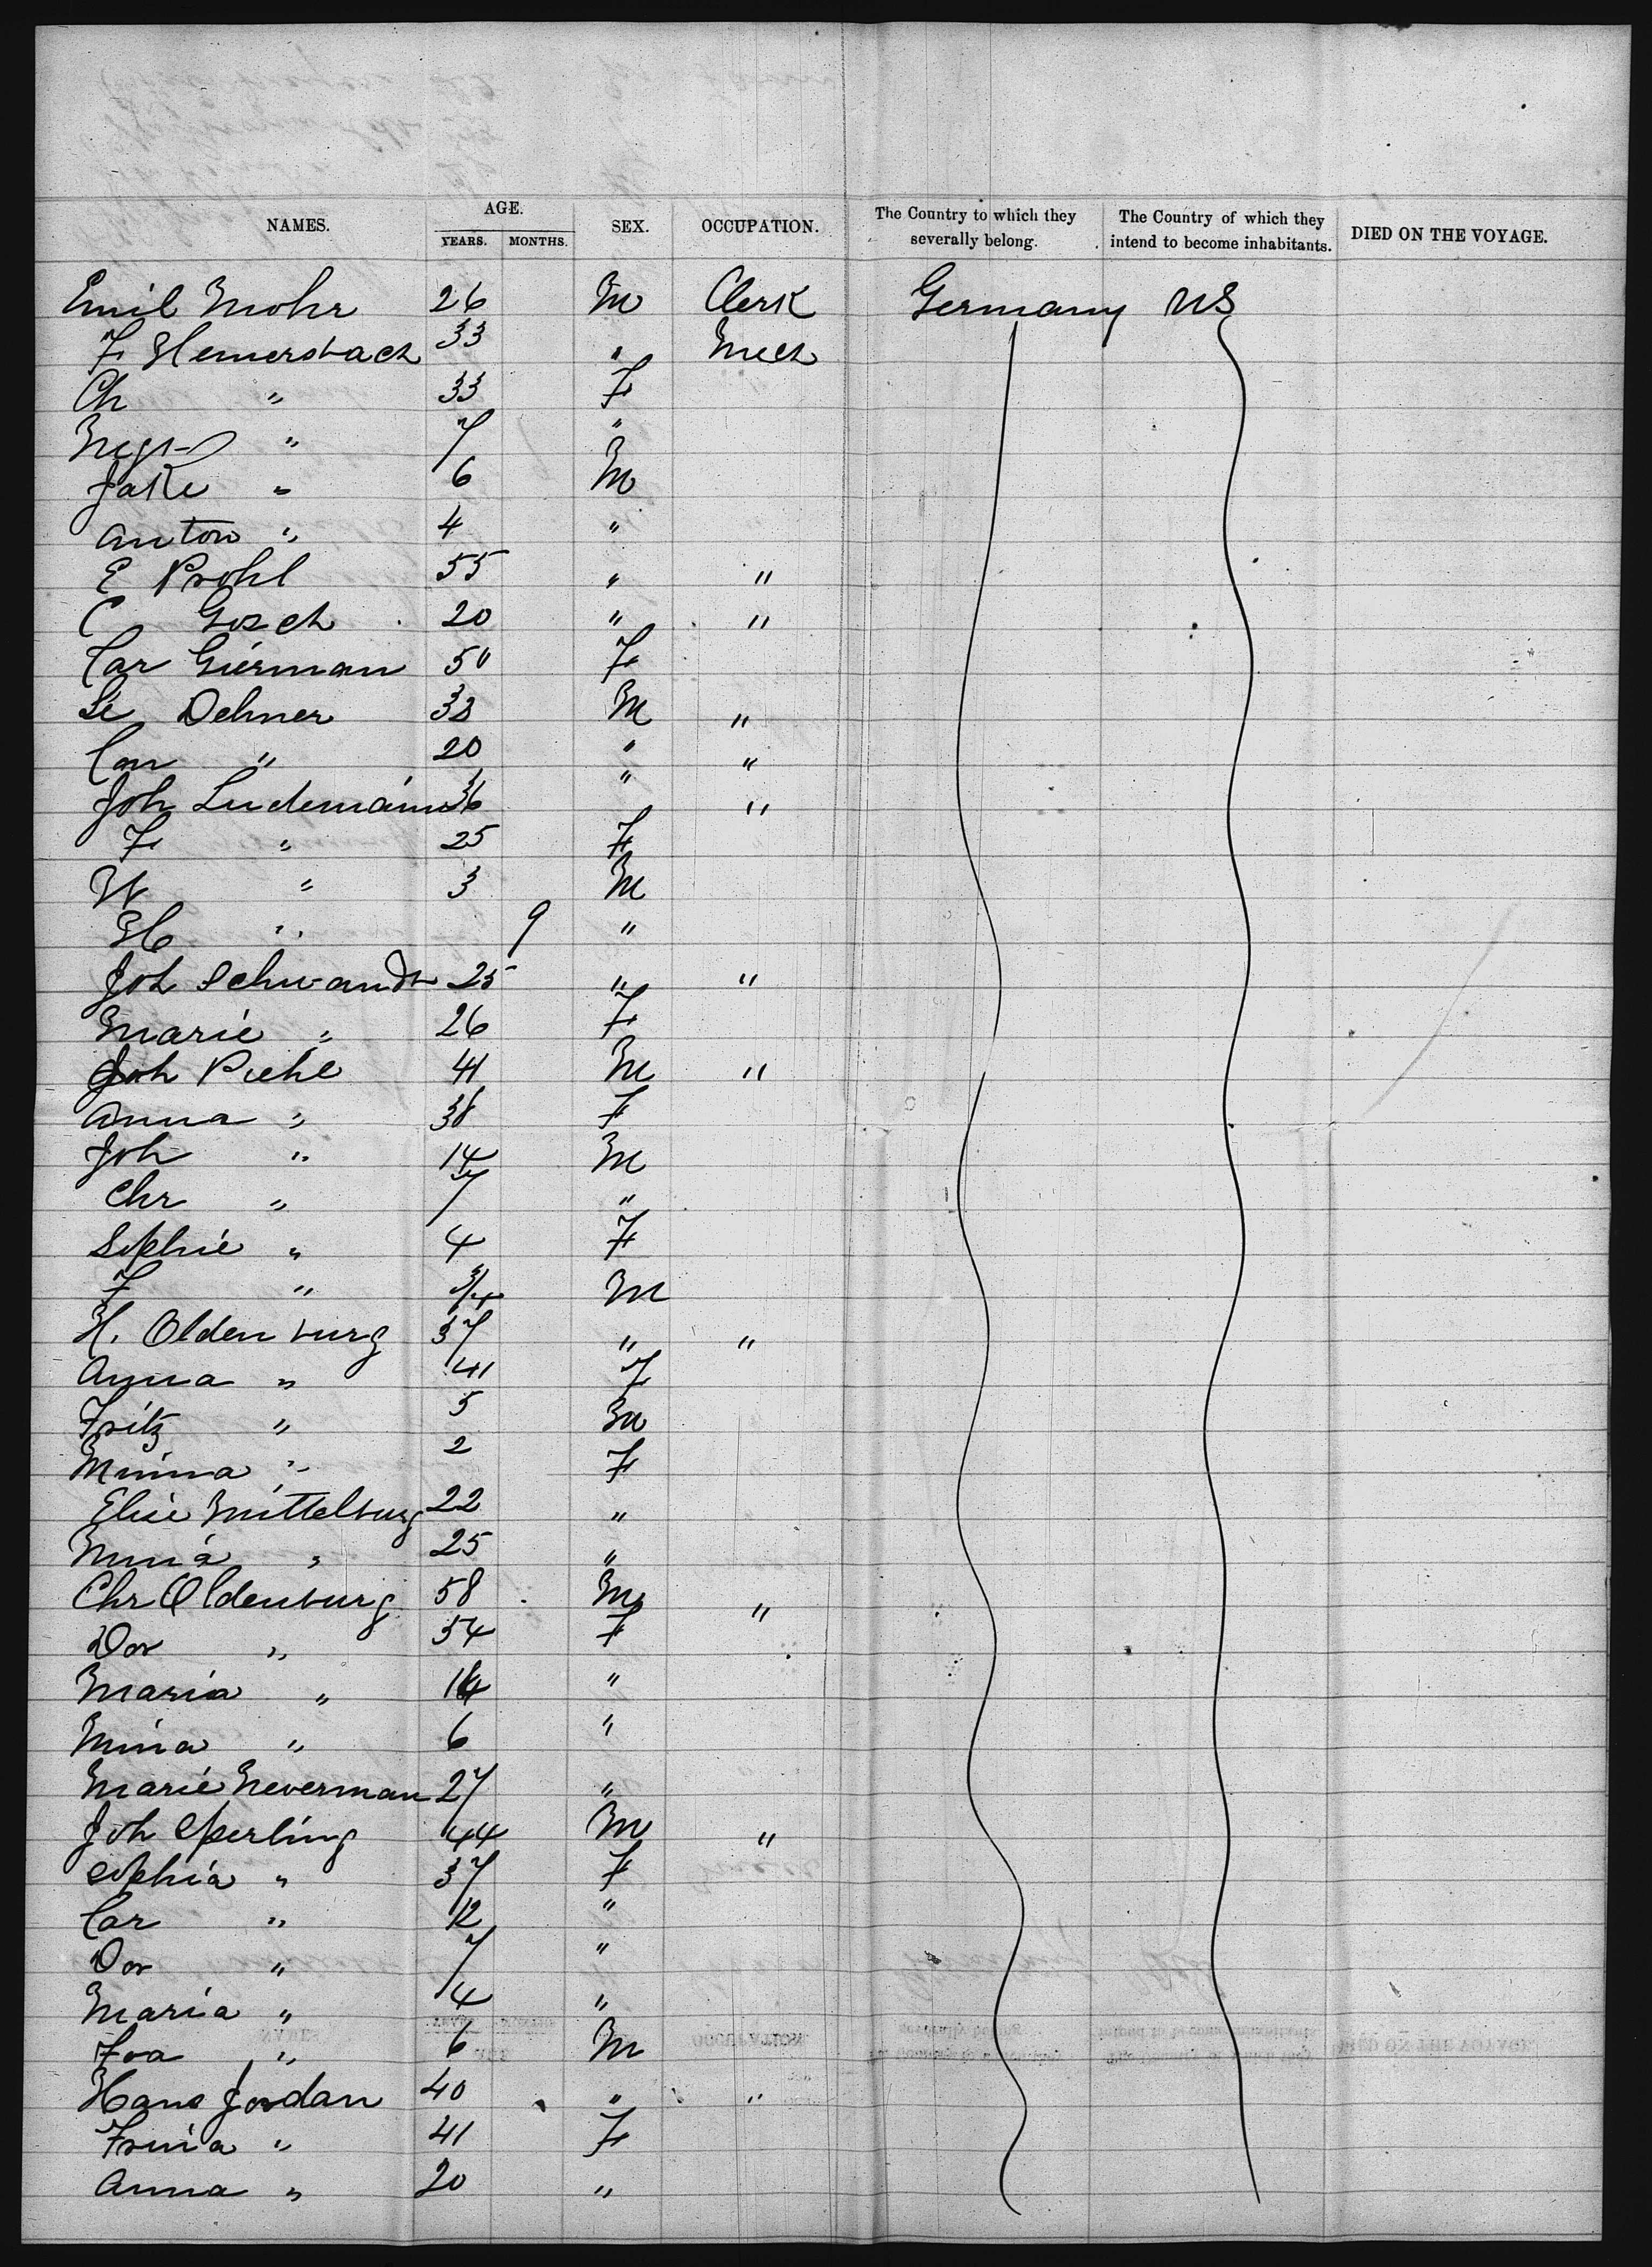 NAMES. AGE. YEARS. MONTHS. SEX. OCCUPATION. The Country to which they severally belong. The Country of which they intend to become inhabitants. DIED ON THE VOYAGE.
Emil Mohr 26 M Clerk Germany US
F Hemersbach 33 " Mech
Ch " 33 F
" 7 "
Jake " 6 M
Anton " 4 "
E Prohl 55 " "
C Gosch 20 " "
Car Gierman 50 F
Le Dehner 33 M "
Car " 20 " "
Joh Ludemann 36 " "
F " 25 F
W " 3 M
H " 9 "
Joh Schwandt 25 " "
Marie " 26 F
Joh Piehl 41 M "
Anna " 38 F
Joh " 14 M
Chr " 7 "
Sophie " 4 F
F " 3/4 M
H. Oldenburg 37 " "
Anna " 41 F
Fritz " 5 M
Minna " 2 F
Elise Mittelburg 22 "
Mina " 25 "
Chr Oldenburg 58 M "
Dor " 54 F
Maria " 14 "
Mina " 6 "
Marie Neverman 27 "
Joh Sperling 44 M "
Sophia " 37 F
Car " 12 "
Dor " 7 "
Maria " 4 "
" 6 M
Hans Jordan 40 " "
" 41 F
Anna " 20 "